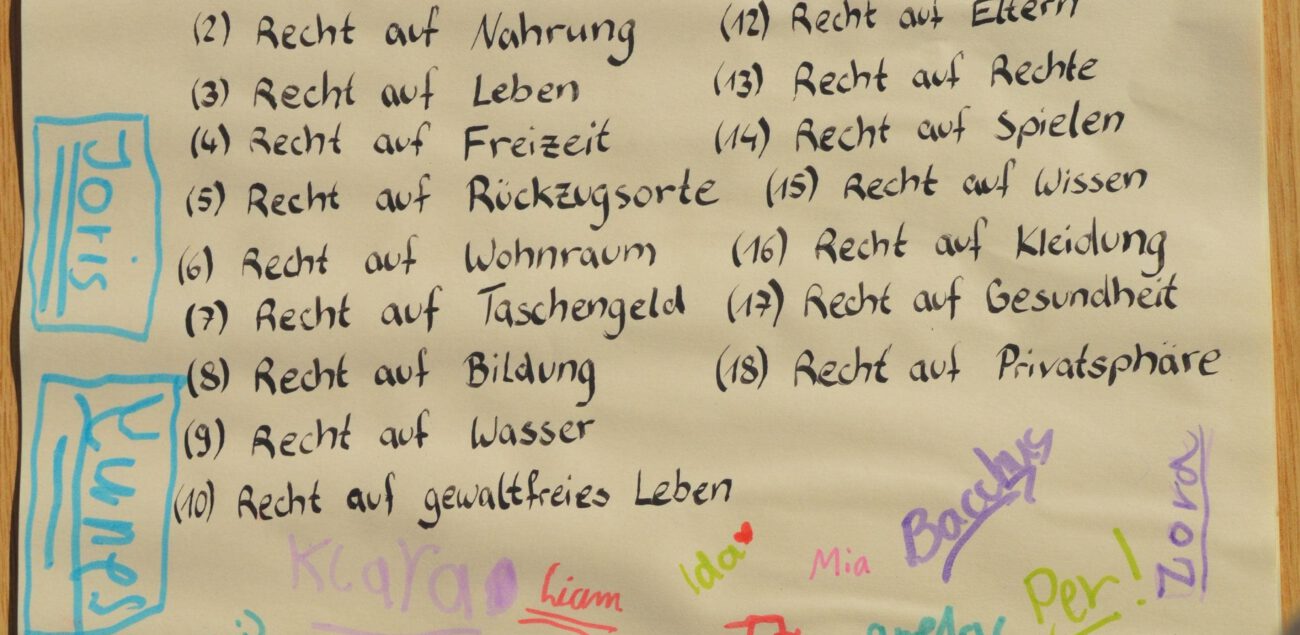 (2) Recht auf Nahrung
(3) Recht auf Leben
(4) Recht auf Freizeit
(5) Recht auf Rückzugsorte
(6) Recht auf Wohnraum
(7) Recht auf Taschengeld
(8) Recht auf Bildung
(9) Recht auf Wasser
(10) Recht auf gewaltfreies Leben
(12) Recht auf Eltern
(13) Recht auf Rechte
(14) Recht auf Spielen
(15) Recht auf Wissen
(16) Recht auf Kleidung
(17) Recht auf Gesundheit
(18) Recht auf Privatsphäre
Joris
Yunes
Klara
Liam
Ida
Mia
Bacchus
Per!
Zora
:)